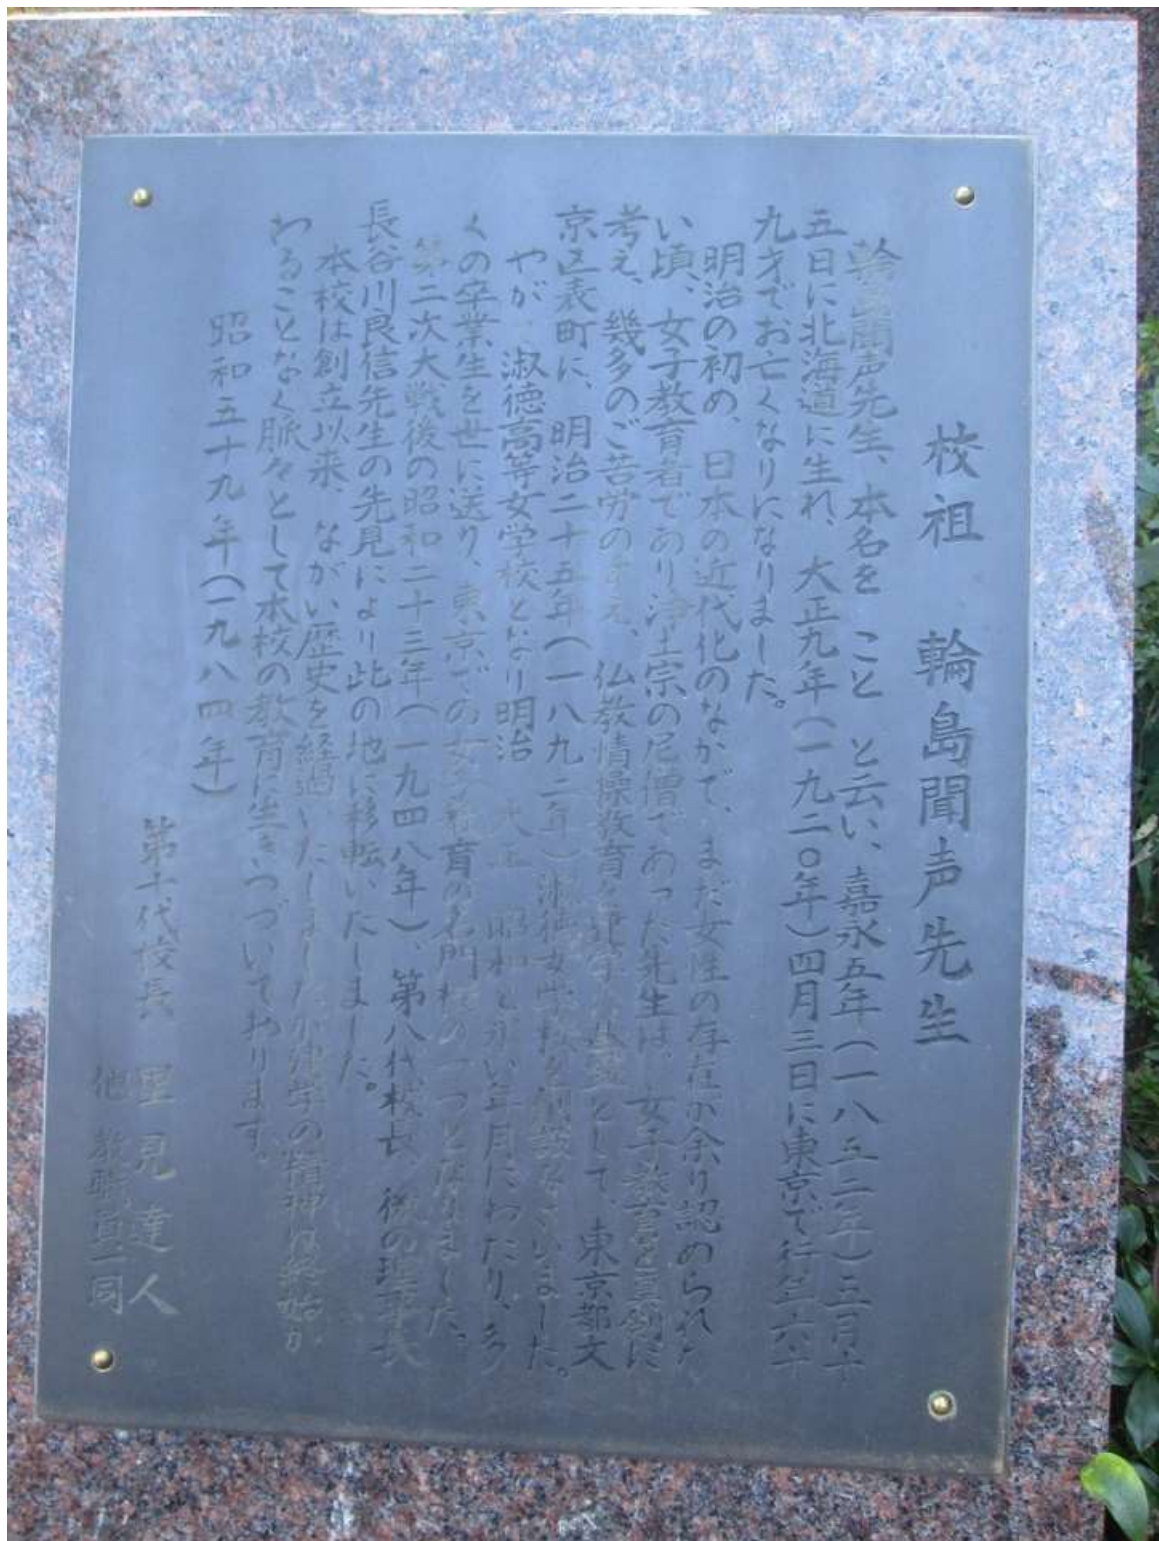 校祖 輪島聞声先生
輪島聞声先生、本名を こと と云い、嘉永五年(一八五二年)三月十
五日に北海道に生れ、大正九年(一九二〇年)四月三日に東京で行年六十
九才でお亡くなりになりました。
明治の初め、日本の近代化のなかで、まだ女性の存在が余り認められな
い頃、女子教育者であり浄土宗の尼僧であった先生は、女子教育を真剣に
考え、幾多のご苦労のすえ、仏教情操教育を建学の基盤として、東京都文
京区表町に、明治二十五年(一八九二年)淑徳女学校を創設なさいました。
やが 淑徳高等女学校となり明治 大正 昭和とながい年月にわたり、多
くの卒業生を世に送り、東京での女子教育の名門校の一つとなりました。
第二次大戦後の昭和二十三年(一九四八年)、第八代校長、後の理事長
長谷川良信先生の先見により此の地に移転いたしました。
本校は創立以来、ながい歴史を経過いたしましたが建学の精神は終始か
わることなく脈々として本校の教育に生きつづいております。
昭和五十九年(一九八四年)
第十代校長 里見達人
他 教職員一同